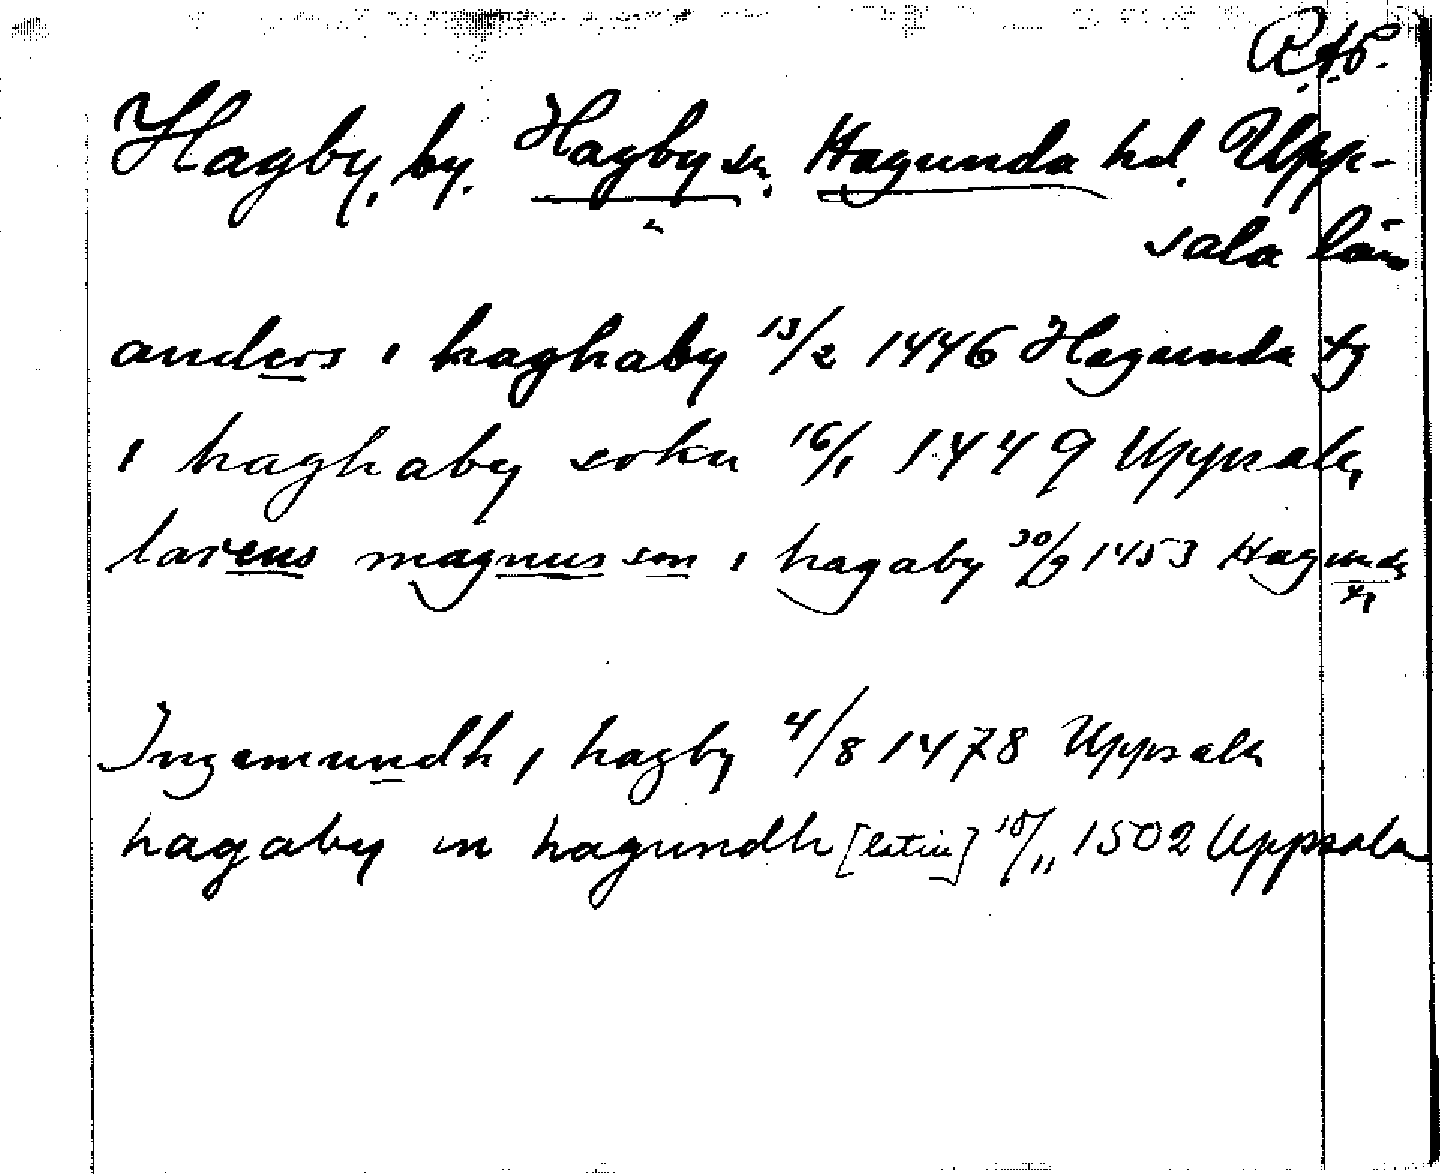 RAP.
Hagby, by. Hagby sn, Hagunda hd. Upp-
sala län
anders i haghaby 13/2 1446 Hagunda tg
i haghaby sokn 16/1 1449 Uppsala
larens magnusson i hagaby 30/9 1453 Hagunda
tg
Ingemundh i hagby 4/8 1478 Uppsala
hagaby in hagundh [latin] 10/11 1502 Uppsala